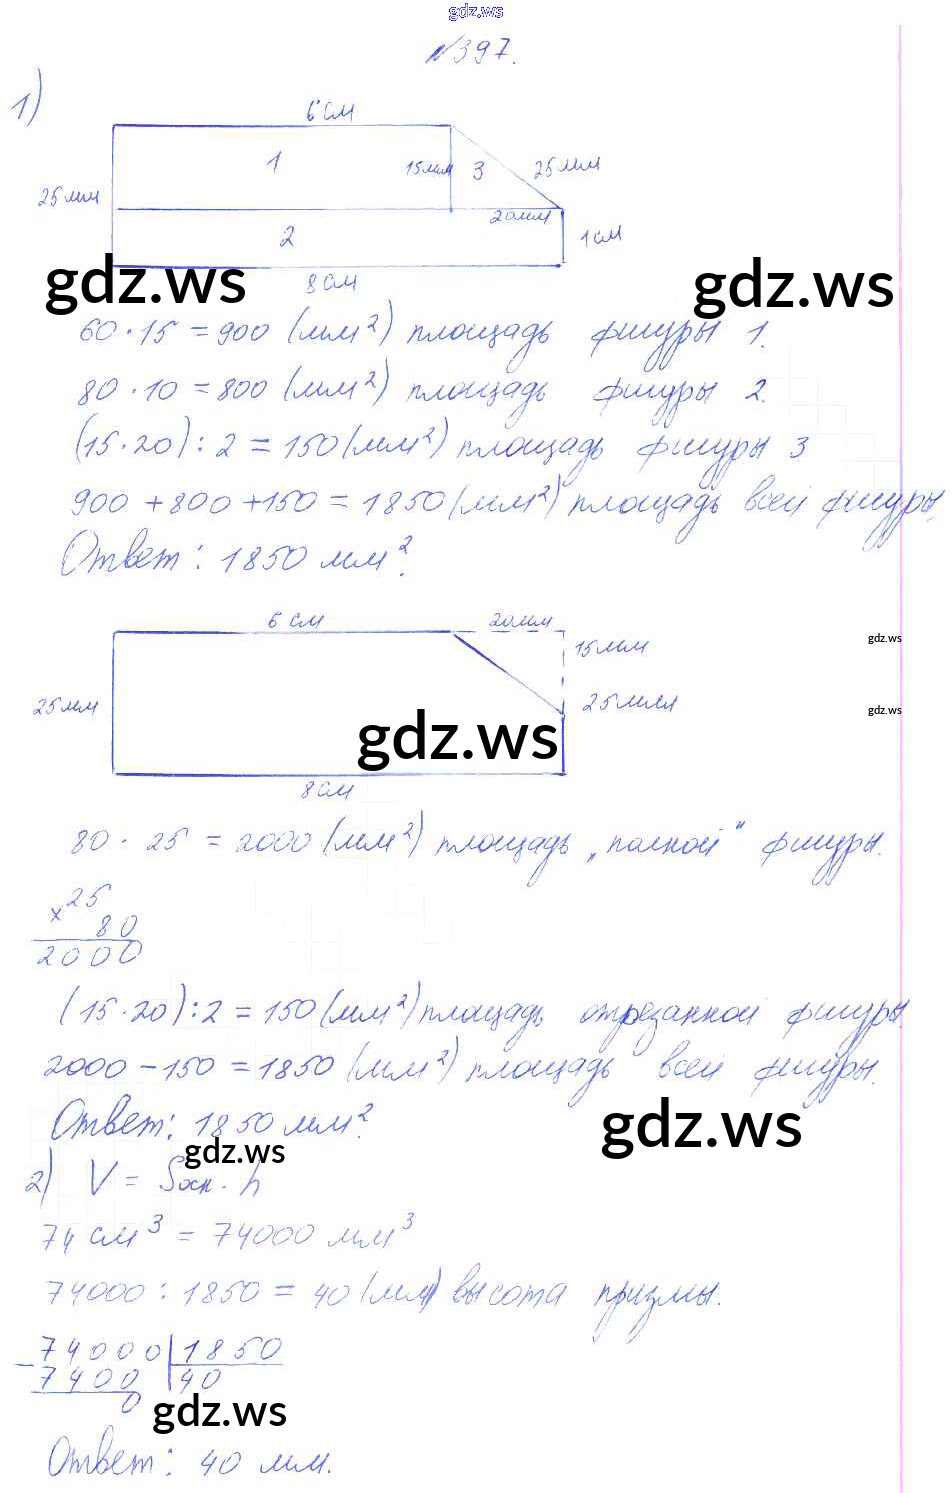 gdz.ws
№397.
1)
6 см
1
15мм
3
25 мм
25 мм
20мм
2
1 см
gdz.ws
gdz.ws
8 см
60·15 = 900 (мм²) площадь фигуры 1.
80·10 = 800 (мм²) площадь фигуры 2.
(15·20) : 2 = 150 (мм²) площадь фигуры 3
900 + 800 + 150 = 1850 (мм²) площадь всей фигуры.
Ответ: 1850 мм².
6 см
20мм
gdz.ws
15мм
25мм
25мм
gdz.ws
gdz.ws
8 см
80 · 25 = 2000 (мм²) площадь „полной" фигуры.
x 25
80
2000
(15·20) : 2 = 150 (мм²) площадь отрезанной фигуры.
2000 - 150 = 1850 (мм²) площадь всей фигуры.
Ответ: 1850 мм².
gdz.ws
gdz.ws
2) V = Sосн · h
74 см³ = 74000 мм³
74000 : 1850 = 40 (мм) высота призмы.
- 74000 | 1850
7400 | 40
0
gdz.ws
Ответ: 40 мм.